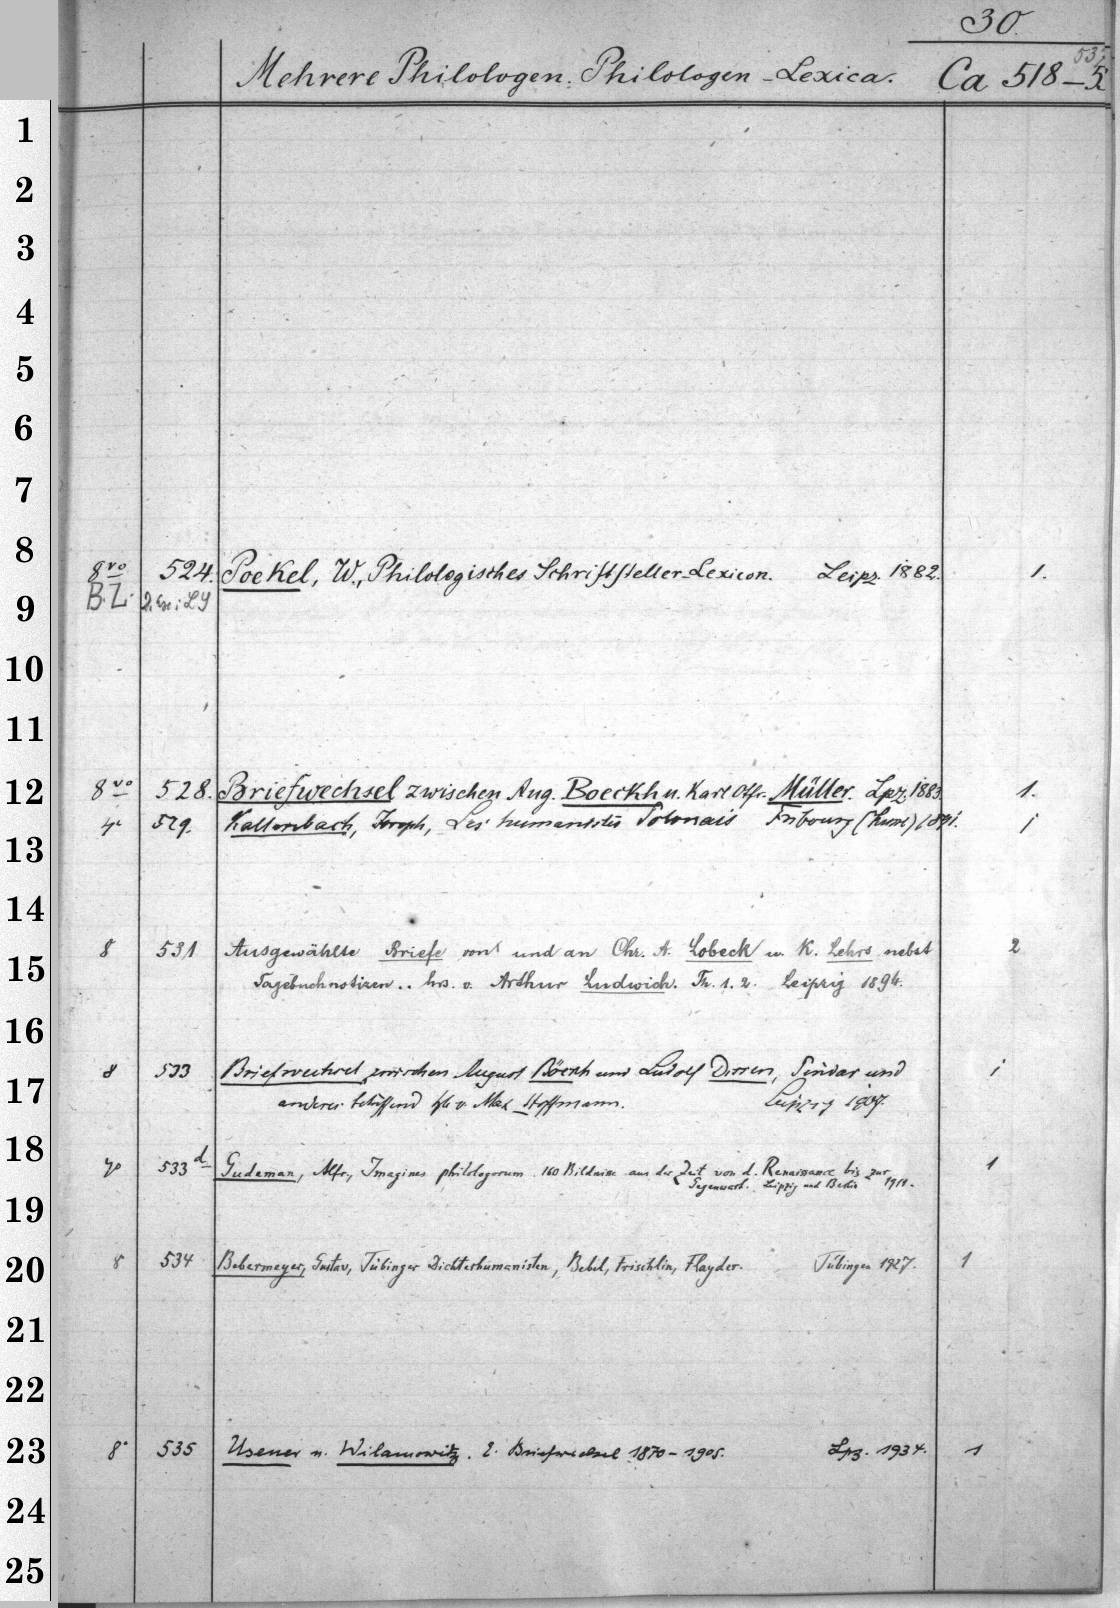 30.
535
Mehrere Philologen. Philologen-Lexica. Ca 518-5
1
2
3
4
5
6
7
8
8vo 524. Poekel, W., Philologisches Schriftsteller-Lexicon. Leipz. 1882. 1.
B.Z. 2. Ex: LS
9
10
11
12
8vo 528. Briefwechsel zwischen Aug. Boeckh u. Karl Otfr. Müller. Lpz. 1883 1.
529. Kallenbach, Joseph, Les humanistes Polonais Fribourg 1891. 1
13
14
8 531 Ausgewählte Briefe von und an Chr. A. Lobeck u. K. Lehrs nebst 2
15
Tagebuchnotizen.. hrs. v. Arthur Ludwich. Th. 1. 2. Leipzig 1894.
16
8 533 Briefwechsel zwischen August Böckh und Ludolf Dissen, Pindar und 1
17
anderes betreffend hb v. Max Hoffmann. Leipzig 1907.
18
4o 533d Gudeman, Alfr., Imagines philologorum. 160 Bildnisse aus der Zeit von d. Renaissance bis zur 1
Gegenwart. Leipzig und Berlin 1911.
19
8 534 Bebermeyer, Gustav, Tübinger Dichterhumanisten, Bebel, Frischlin, Flayder. Tübingen 1927. 1
20
21
22
23
8° 535 Usener u. Wilamowitz. E. Briefwechsel 1870-1905. Lpz. 1934. 1
24
25